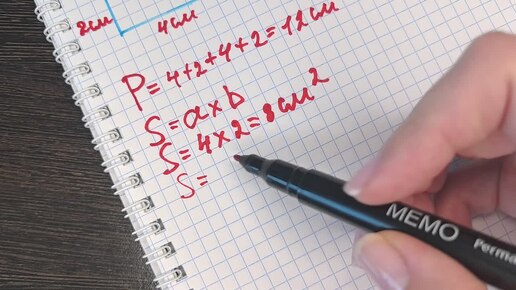 2см
4см
P=4+2+4+2=12см
S=a×b
S=4×2=8см²
S=
MEMO
Perma